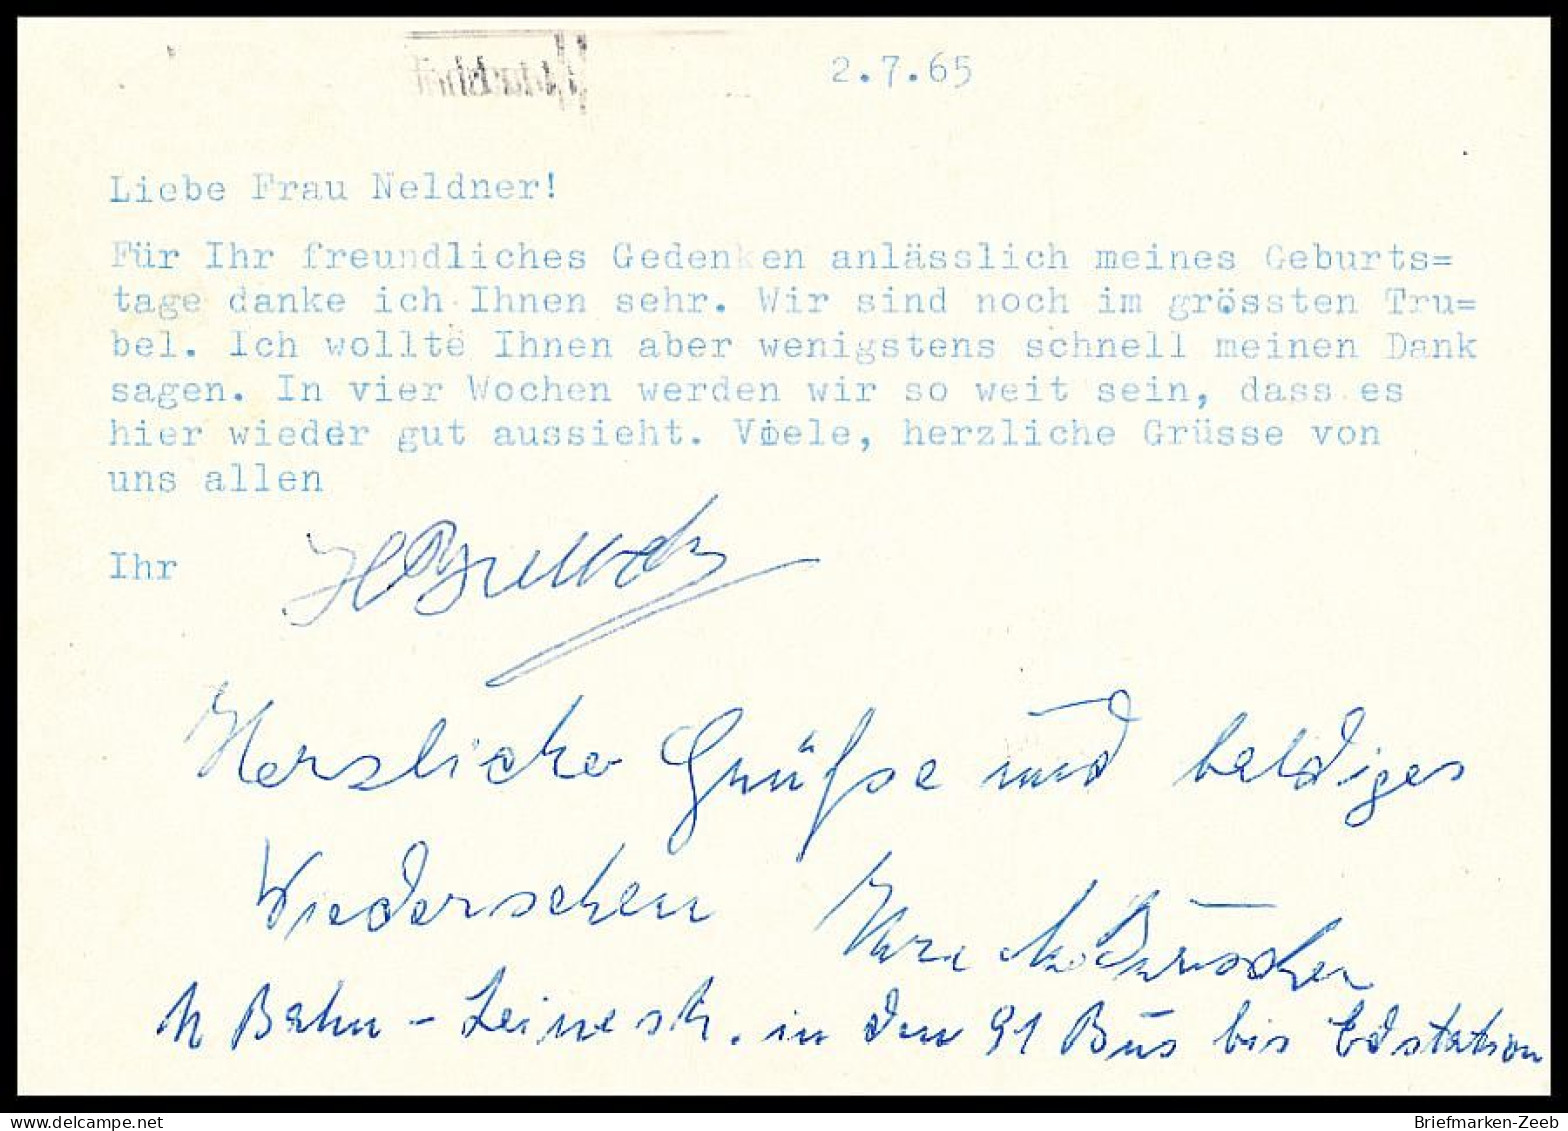 2.7.65
Liebe Frau Neldner!
Für Ihr freundliches Gedenken anlässlich meines Geburts=
tage danke ich Ihnen sehr. Wir sind noch im grössten Tru=
bel. Ich wollte Ihnen aber wenigstens schnell meinen Dank
sagen. In vier Wochen werden wir so weit sein, dass es
hier wieder gut aussieht. Viele, herzliche Grüsse von
uns allen
Ihr
Herzliche Grüße und baldiges
Wiedersehen Ihre
Bahn - Leinestr. in den 91 Bus bis Edstation
Briefmarken-Zeeb